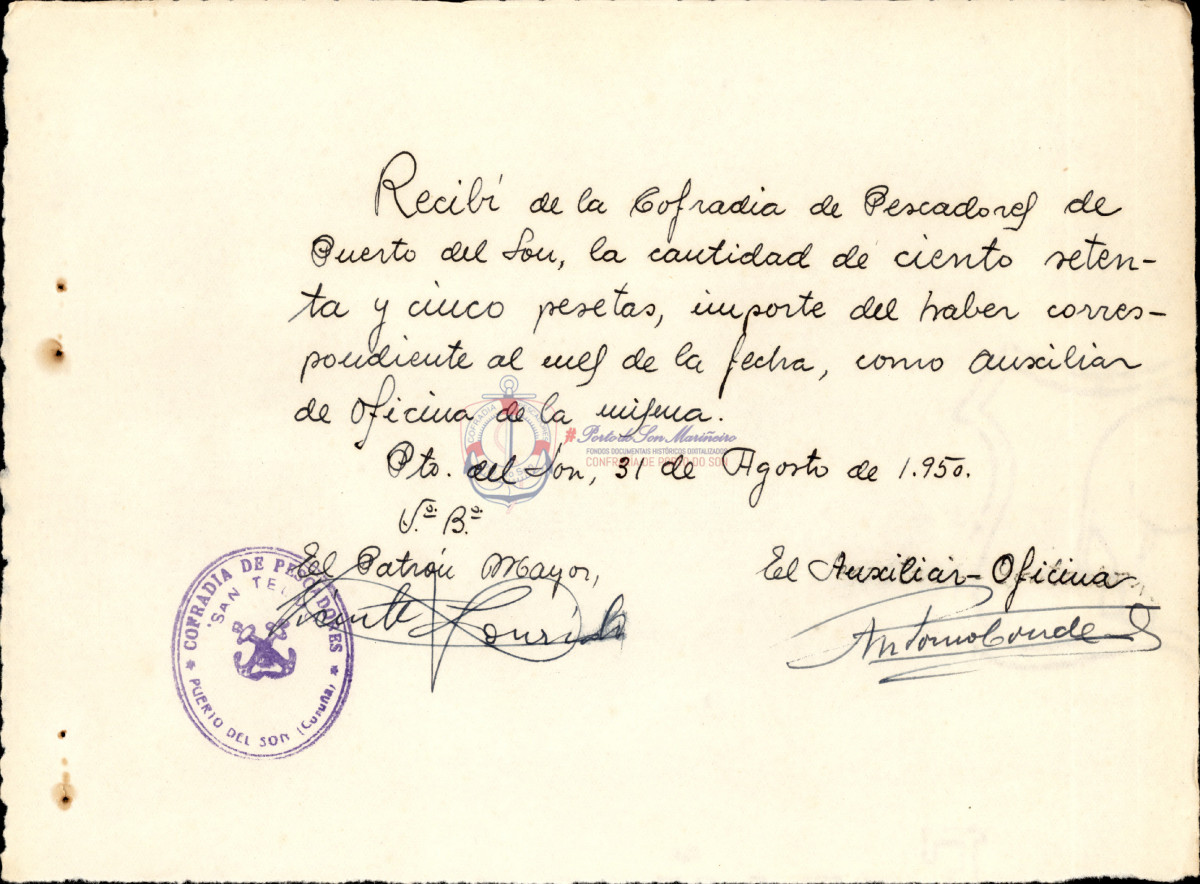 Recibí de la Cofradia de Pescadores de
Puerto del Son, la cantidad de ciento seten-
ta y cinco pesetas, importe del haber corres-
pondiente al mes de la fecha, como auxiliar
de Oficina de la misma.
COFRADIA
# Porto do Son Mariñeiro
FONDOS DOCUMENTAIS HISTÓRICOS DIXITALIZADOS
CONFRARÍA DE PORTO DO SON
Pto. del Son, 31 de Agosto de 1.950.
V.º B.º
El Patrón Mayor,
El Auxiliar-Oficina
Vicente
Antonio Conde
COFRADIA DE PESCADORES
"SAN TE
* PUERTO DEL SON (Coruña) *